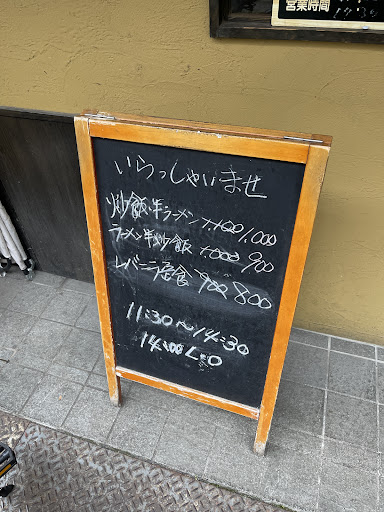 営業時間
いらっしゃいませ
炒飯·半ラーメン 1,100 1,000
ラーメン·半炒飯 1,000 900
レバニラ定食 900 800
11:30～14:30
14:00 L.O